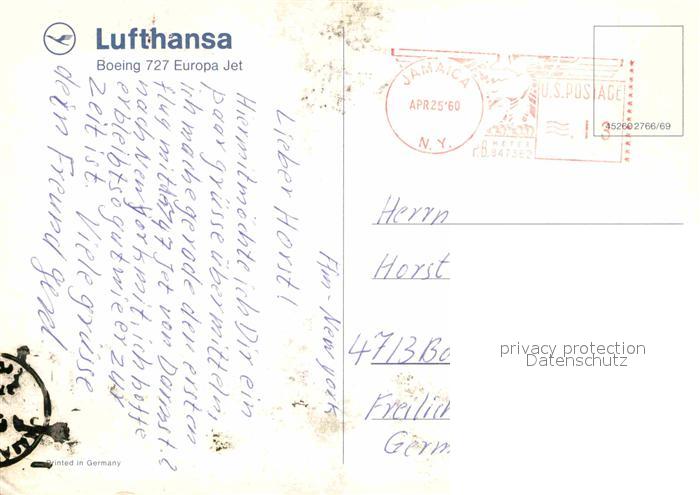 Lufthansa
Boeing 727 Europa Jet
Am - New York
Lieber Horst!
Hiermit möchte ich Dir ein
paar grüsse übermitteln,
ich mache gerade den ersten
flug mit 747 Jet von Darmst. 2
nach New York mit, ich hoffe
er bleibt so gut wie er zur
Zeit ist. Viele grüsse
dein Freund gerd.
JAMAICA
APR 25 '60
N.Y.
U.S. POSTAGE
P.B. METER
847362
452602766/69
Herrn
Horst
4713 Bo
Freilich
Germ
privacy protection
Datenschutz
Printed in Germany